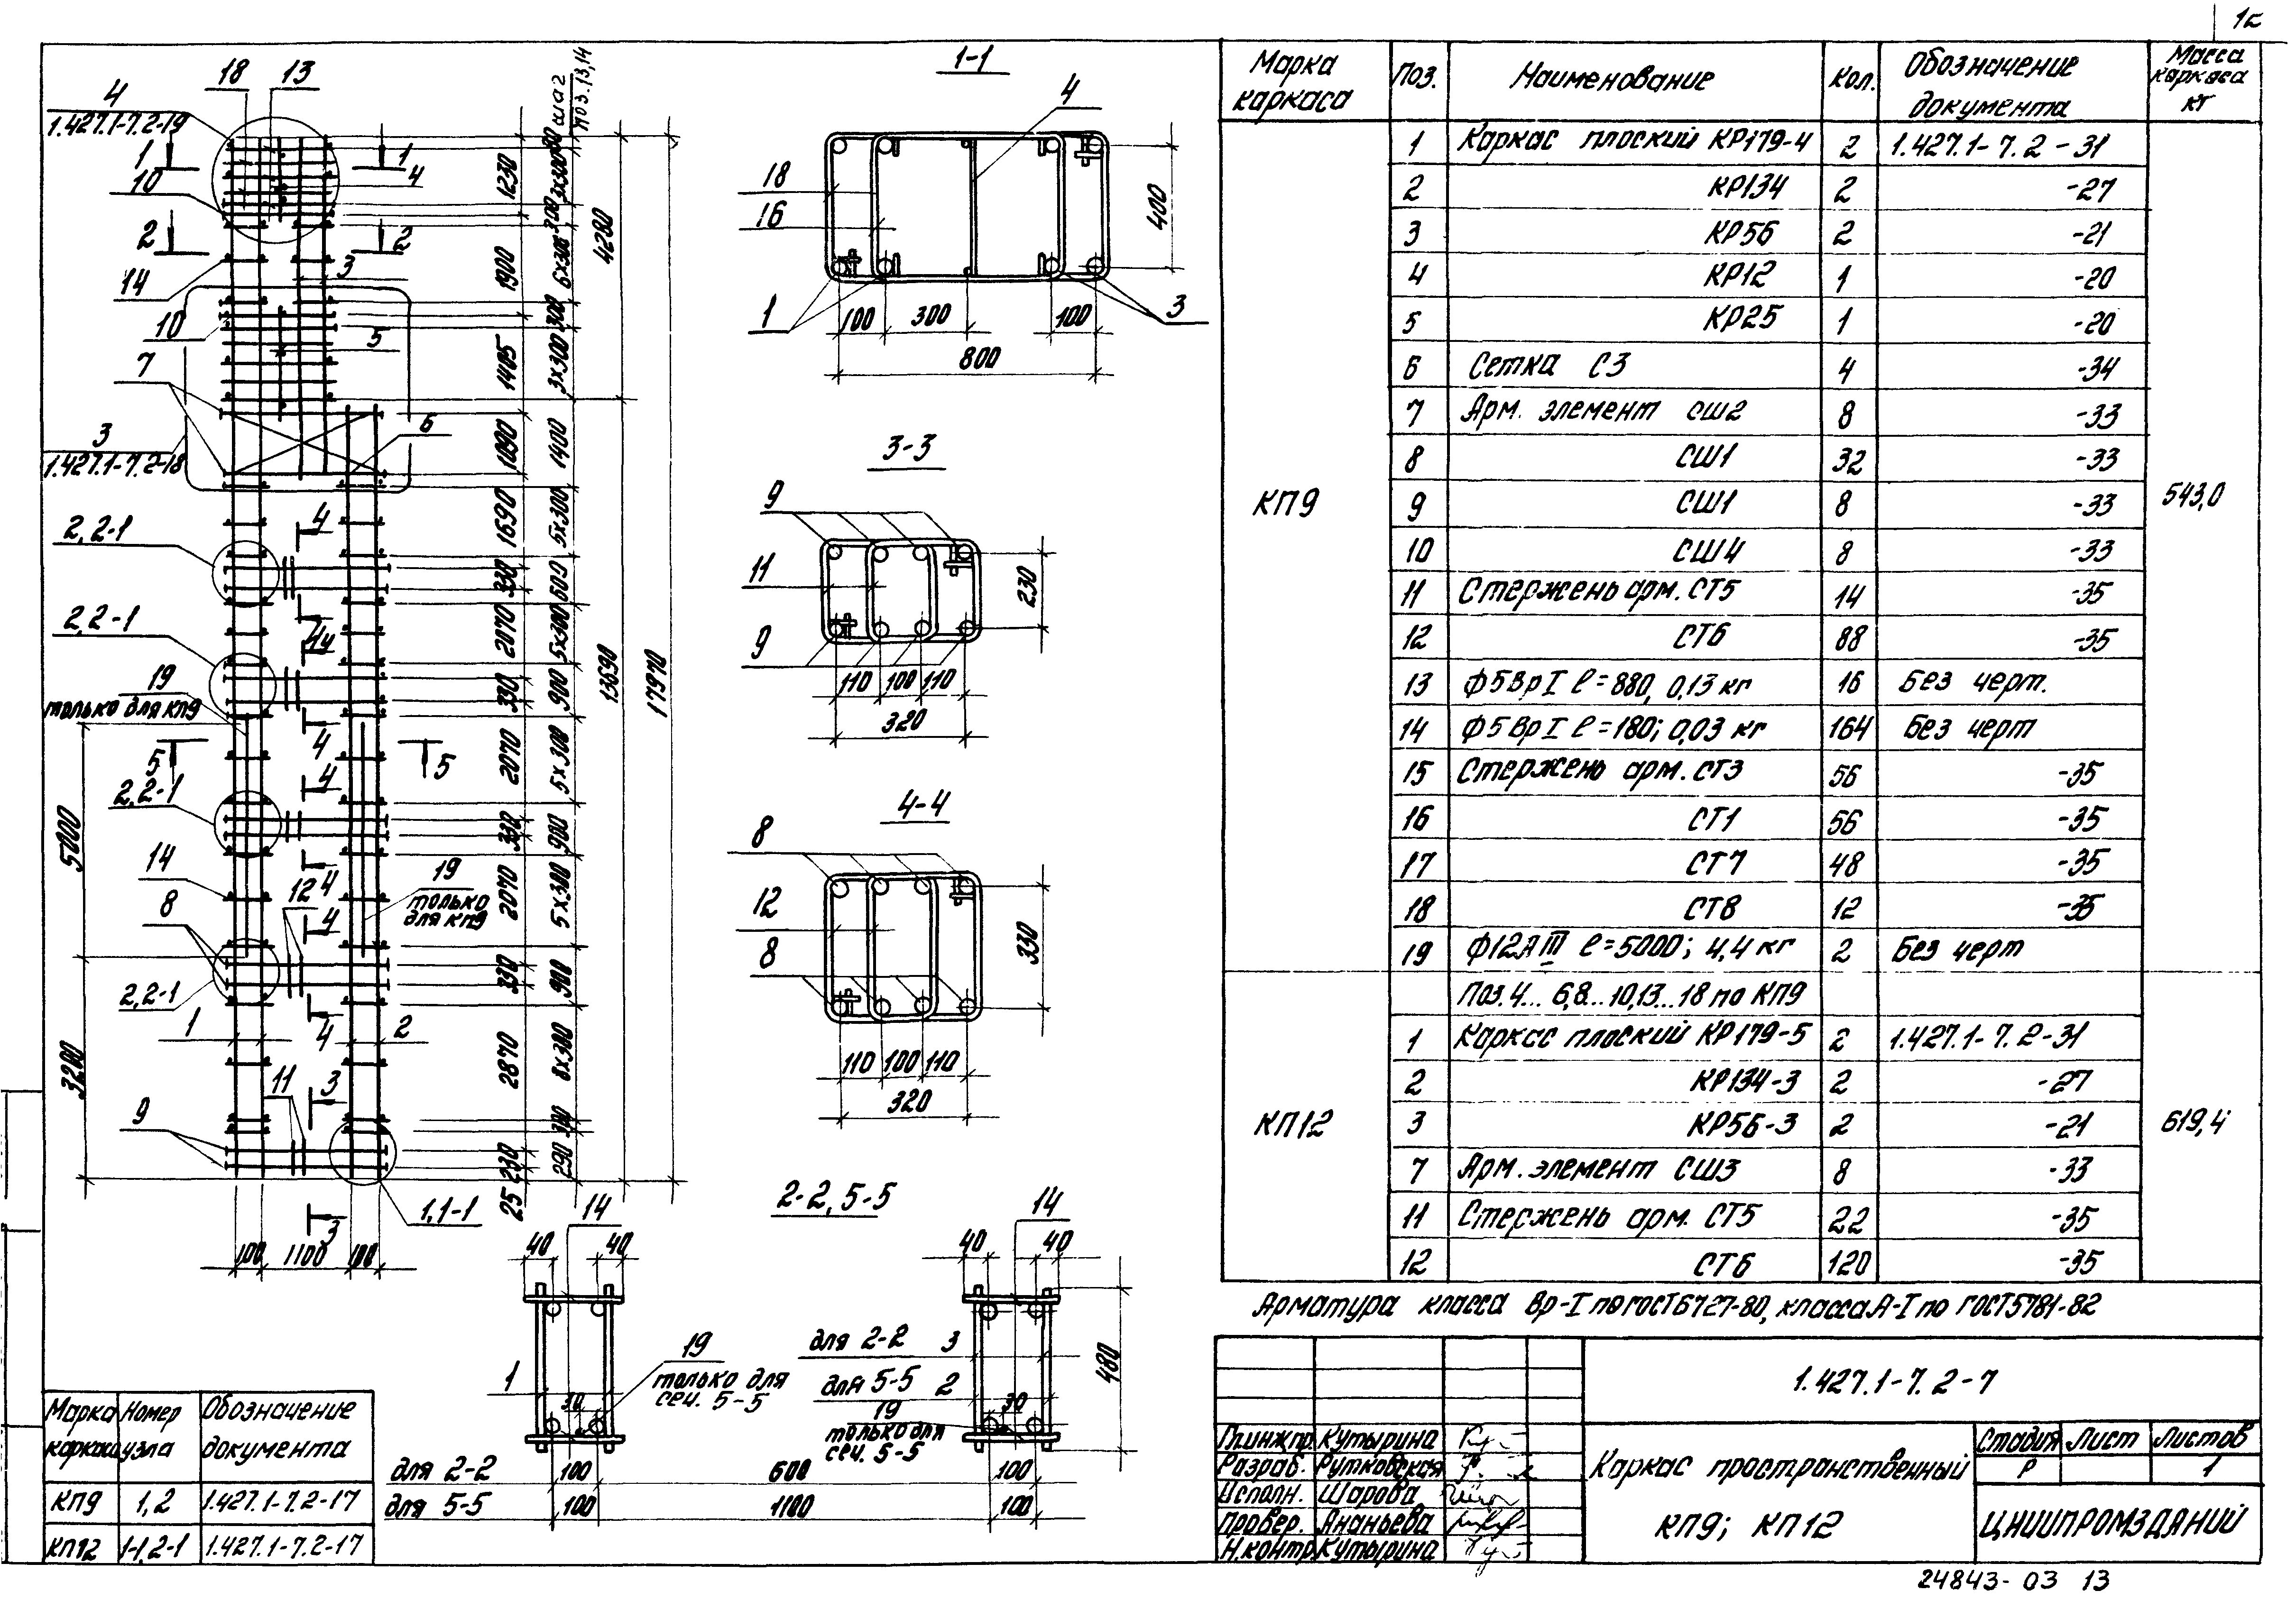 12
18 13
4
1.427.1-7.2-19
1 1
10
4
2 2
14
3
10
5
7
6
3
1.427.1-7.2-18
2,2-1
4
2,2-1
4
4
19
только для КП9
4
5 5
4
2,2-1
14
4
12
19
только
для КП9
8
4
2,2-1
1
4
2
11
3
9
3
1,1-1
5000
3200
100 1100 100
шаг
поз.13,14
1230
1900
1405
1090
1690
330
2070
330
2070
330
2070
330
2870
230
25
3х300
300
6х300
300
3х300
1400
5х300
600
5х300
900
5х300
900
5х300
900
8х300
300
290
4280
13690
17970
1-1
4
18
16
1
3
400
100 300 100
800
3-3
9
11
9
230
110 100 110
320
4-4
8
12
8
330
110 100 110
320
2-2, 5-5
14 14
40 40 40 40
1
19
только для
сеч. 5-5
30
для 2-2 3
для 5-5 2
19
только для
сеч. 5-5
30
480
для 2-2 100 600 100
для 5-5 100 1100 100
Марка каркаса Номер узла Обозначение документа
КП9 1,2 1.427.1-7.2-17
КП12 1-1,2-1 1.427.1-7.2-17
Марка каркаса Поз. Наименование Кол. Обозначение документа Масса каркаса кг
КП9 543,0
1 Каркас плоский КР179-4 2 1.427.1-7.2-31
2 КР134 2 -27
3 КР56 2 -21
4 КР12 1 -20
5 КР25 1 -20
6 Сетка С3 4 -34
7 Арм. элемент СШ2 8 -33
8 СШ1 32 -33
9 СШ1 8 -33
10 СШ4 8 -33
11 Стержень арм. СТ5 14 -35
12 СТ6 88 -35
13 Ф5ВрI ℓ=880, 0,13 кг 16 Без черт.
14 Ф5ВрI ℓ=180; 0,03 кг 164 Без черт
15 Стержень арм. СТ3 56 -35
16 СТ1 56 -35
17 СТ7 48 -35
18 СТ8 12 -35
19 Ф12АIII ℓ=5000; 4,4 кг 2 Без черт
КП12 619,4
Поз.4...6,8...10,13...18 по КП9
1 Каркас плоский КР179-5 2 1.427.1-7.2-31
2 КР134-3 2 -27
3 КР56-3 2 -21
7 Арм. элемент СШ3 8 -33
11 Стержень арм. СТ5 22 -35
12 СТ6 120 -35
Арматура класса Вр-I по ГОСТ 6727-80, класса А-I по ГОСТ 5781-82
1.427.1-7.2-7
Гл.инж.пр. Кутырина
Разраб. Рутковская
Исполн. Шарова
Провер. Ананьева
Н.контр. Кутырина
Каркас пространственный
КП9; КП12
Стадия Лист Листов
Р 1
ЦНИИПРОМЗДАНИЙ
24843-03 13